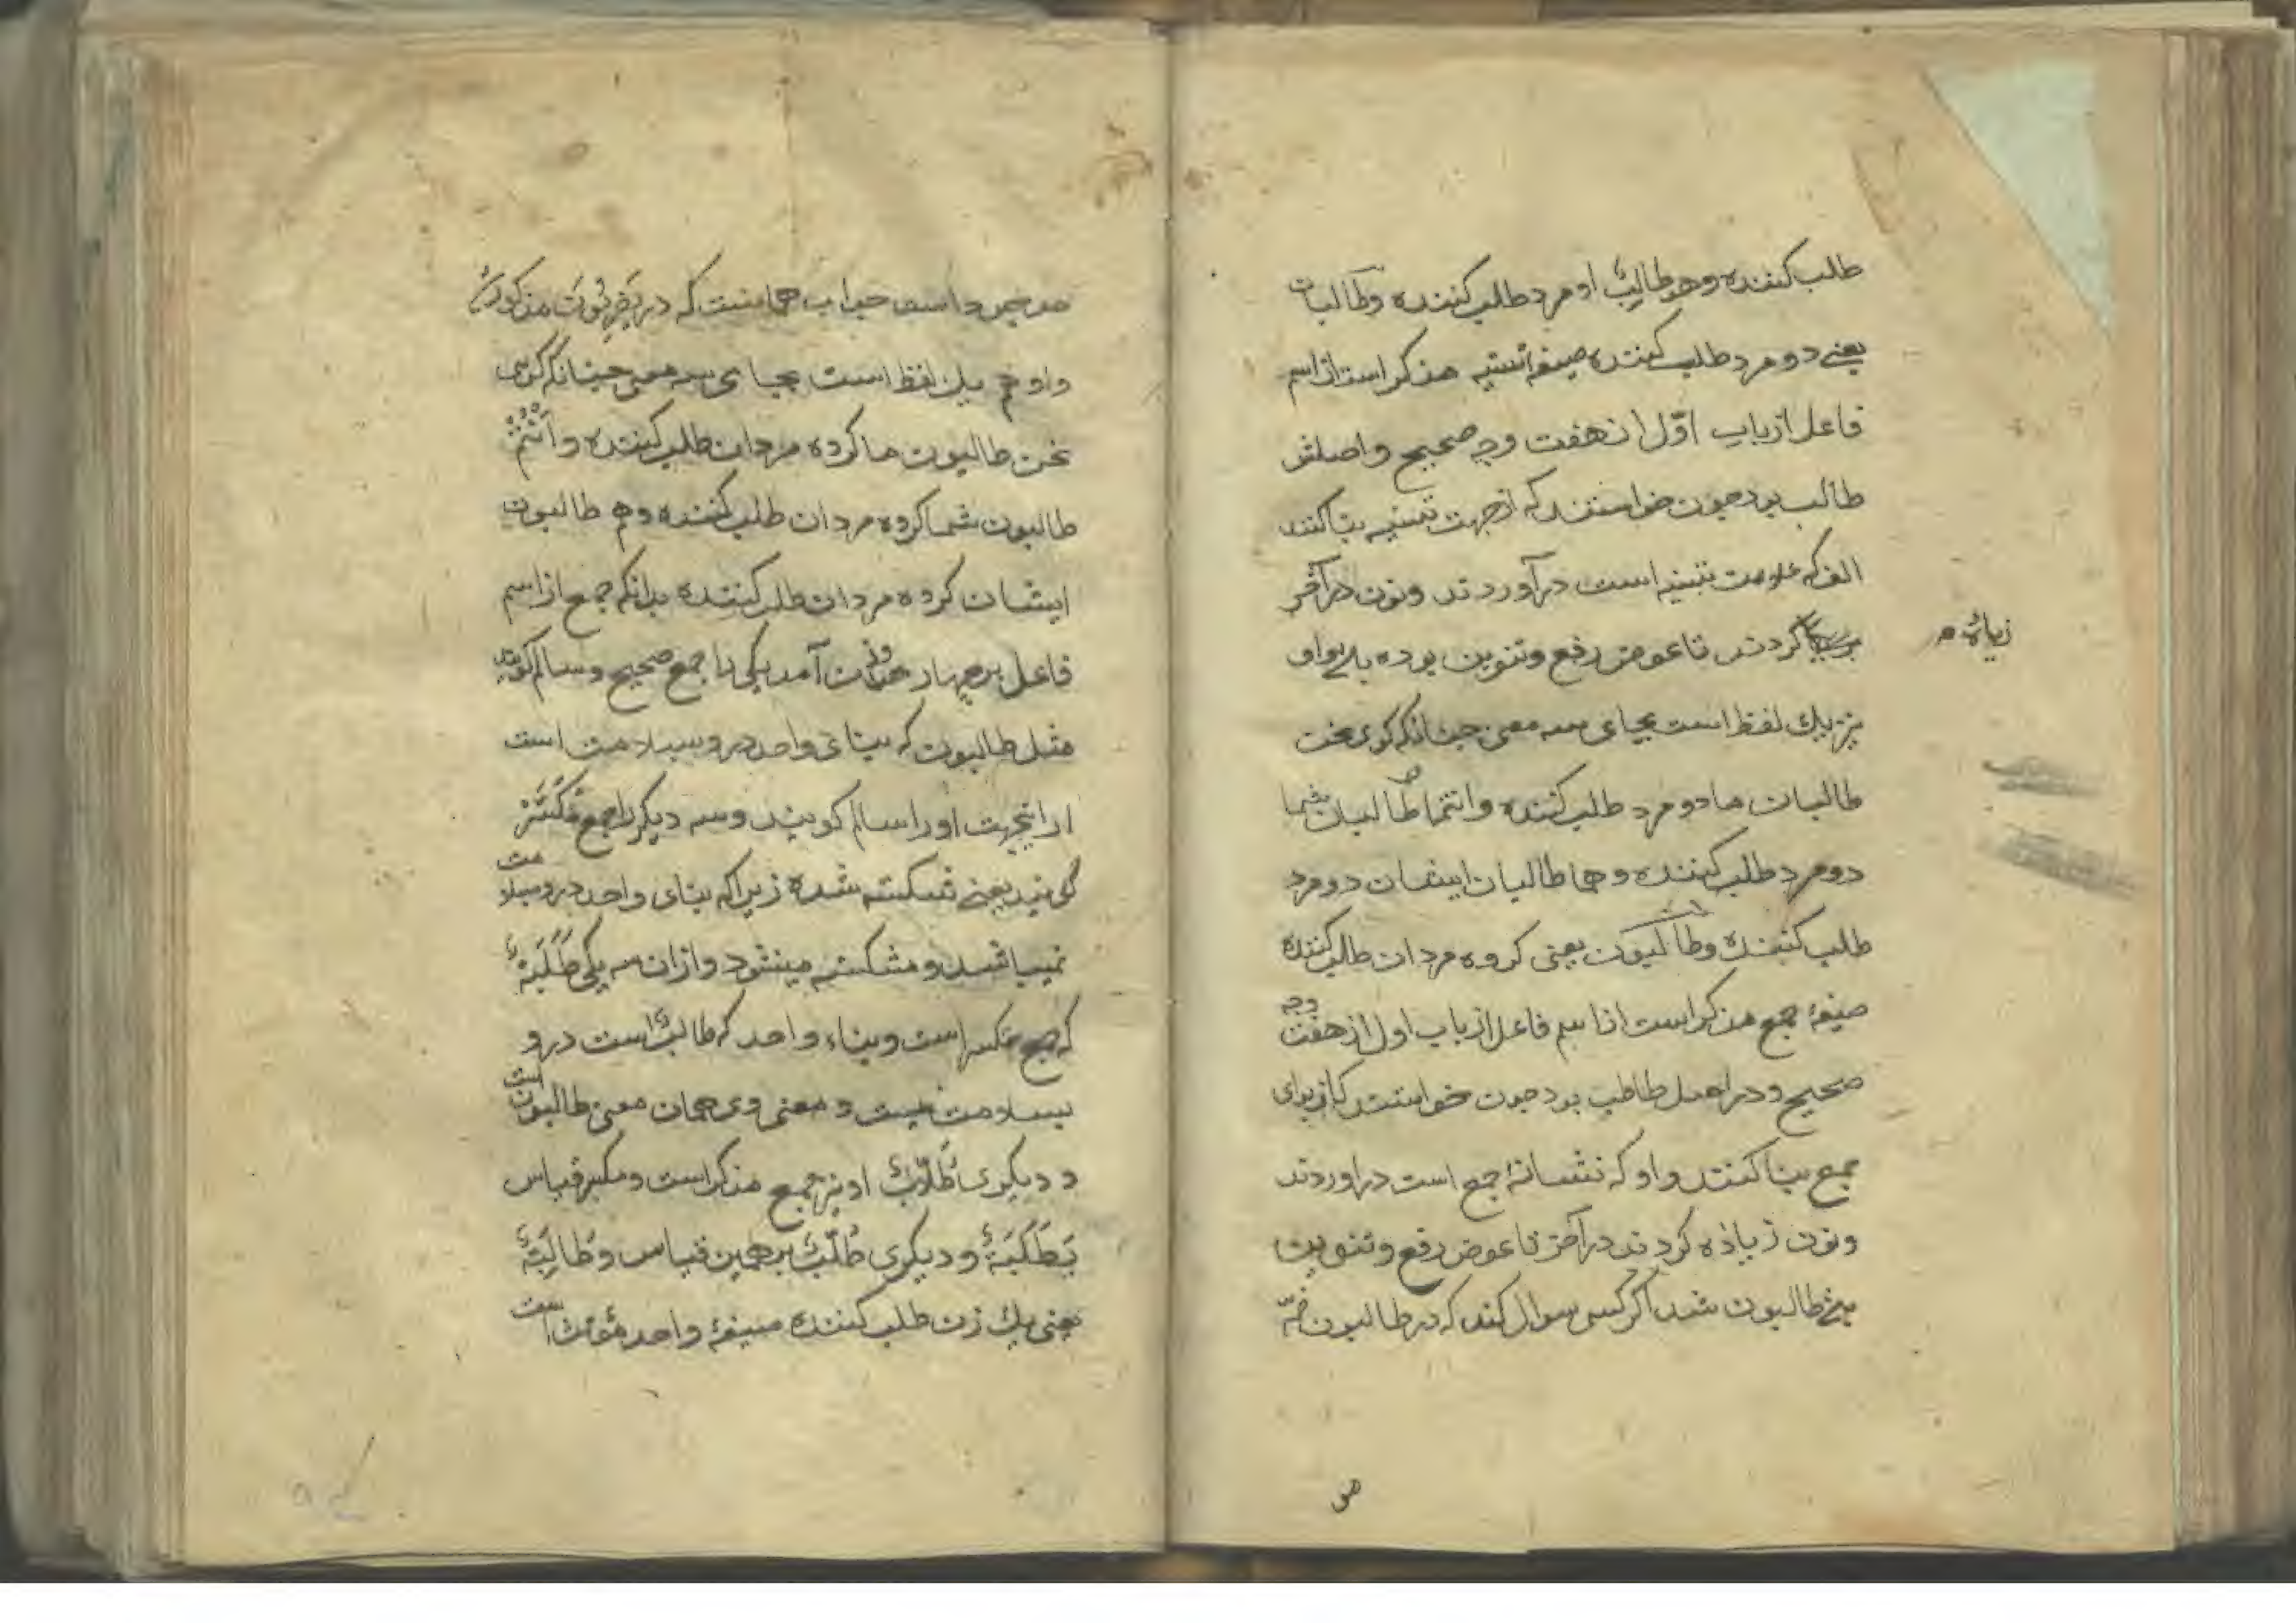 طلب کننده وهو طالبٌ او مرد طلب کننده وطالبان
یعنے دو مرد طلب کننده صیغه تثنیه مذکر است از اسم
فاعل از باب اوّل از هفت وجه صحیح واصلش
طالب بود چون خواستند که از جهت تثنیه بنا کنند
الف که علامت تثنیه است درآوردند ونون در آخر
کردند تا عوض رفع وتنوین بوده
زیاده م
نیز یك لفظ است بجای سه معنی چنانکه کوی نحن
طالبان ما دو مرد طلب کننده وانتما طالبان شما
دو مرد طلب کننده وهما طالبان ایشان دو مرد
طلب کننده وطالبون یعنی کروه مردان طلب کننده
صیغهٔ جمع مذکر است از اسم فاعل از باب اول از هفت وجه
صحیح ودر اصل طالب بود چون خواستند که از برای
جمع بنا کنند واو که نشانهٔ جمع است دراوردند
ونون زیاده کردند در آخر تا عوض رفع وتنوین
طالبون شد اکر کسی سوال کند که در طالبون ضمّه
جواب همانست که در یضربون مذکور
واو هم یك لفظ است بجای سه معنی چنانکه کوی
نحن طالبون ما کروه مردان طلب کننده وانتم
طالبون شما کروه مردان طلب کننده وهم طالبون
ایشان کروه مردان طلب کننده بدانکه جمع از اسم
فاعل بر چهار وزن آمد یکی را جمع صحیح وسالم کویند
مثل طالبون که بنای واحد درو بسلامت است
ازاینجهت اورا سالم کویند وسه دیکر را جمع مکسّر
کویند یعنے شکسته شده زیرا که بنای واحد درو بسلامت
نمیباشد وشکسته میشود وازان سه یکی طَلَبَةٌ
که جمع مکسر است وبناء واحد که طالبٌ است درو
بسلامت نیست ومعنی وی همان معنی طالبون است
ودیکری طُلّابٌ او نیز جمع مذکر است ومکسر قیاس
بطَلَبَةٌ ودیکری طُلّبٌ برهمین قیاس وطالِبَةٌ
یعنی یك زن طلب کننده صیغهٔ واحد مؤنث است